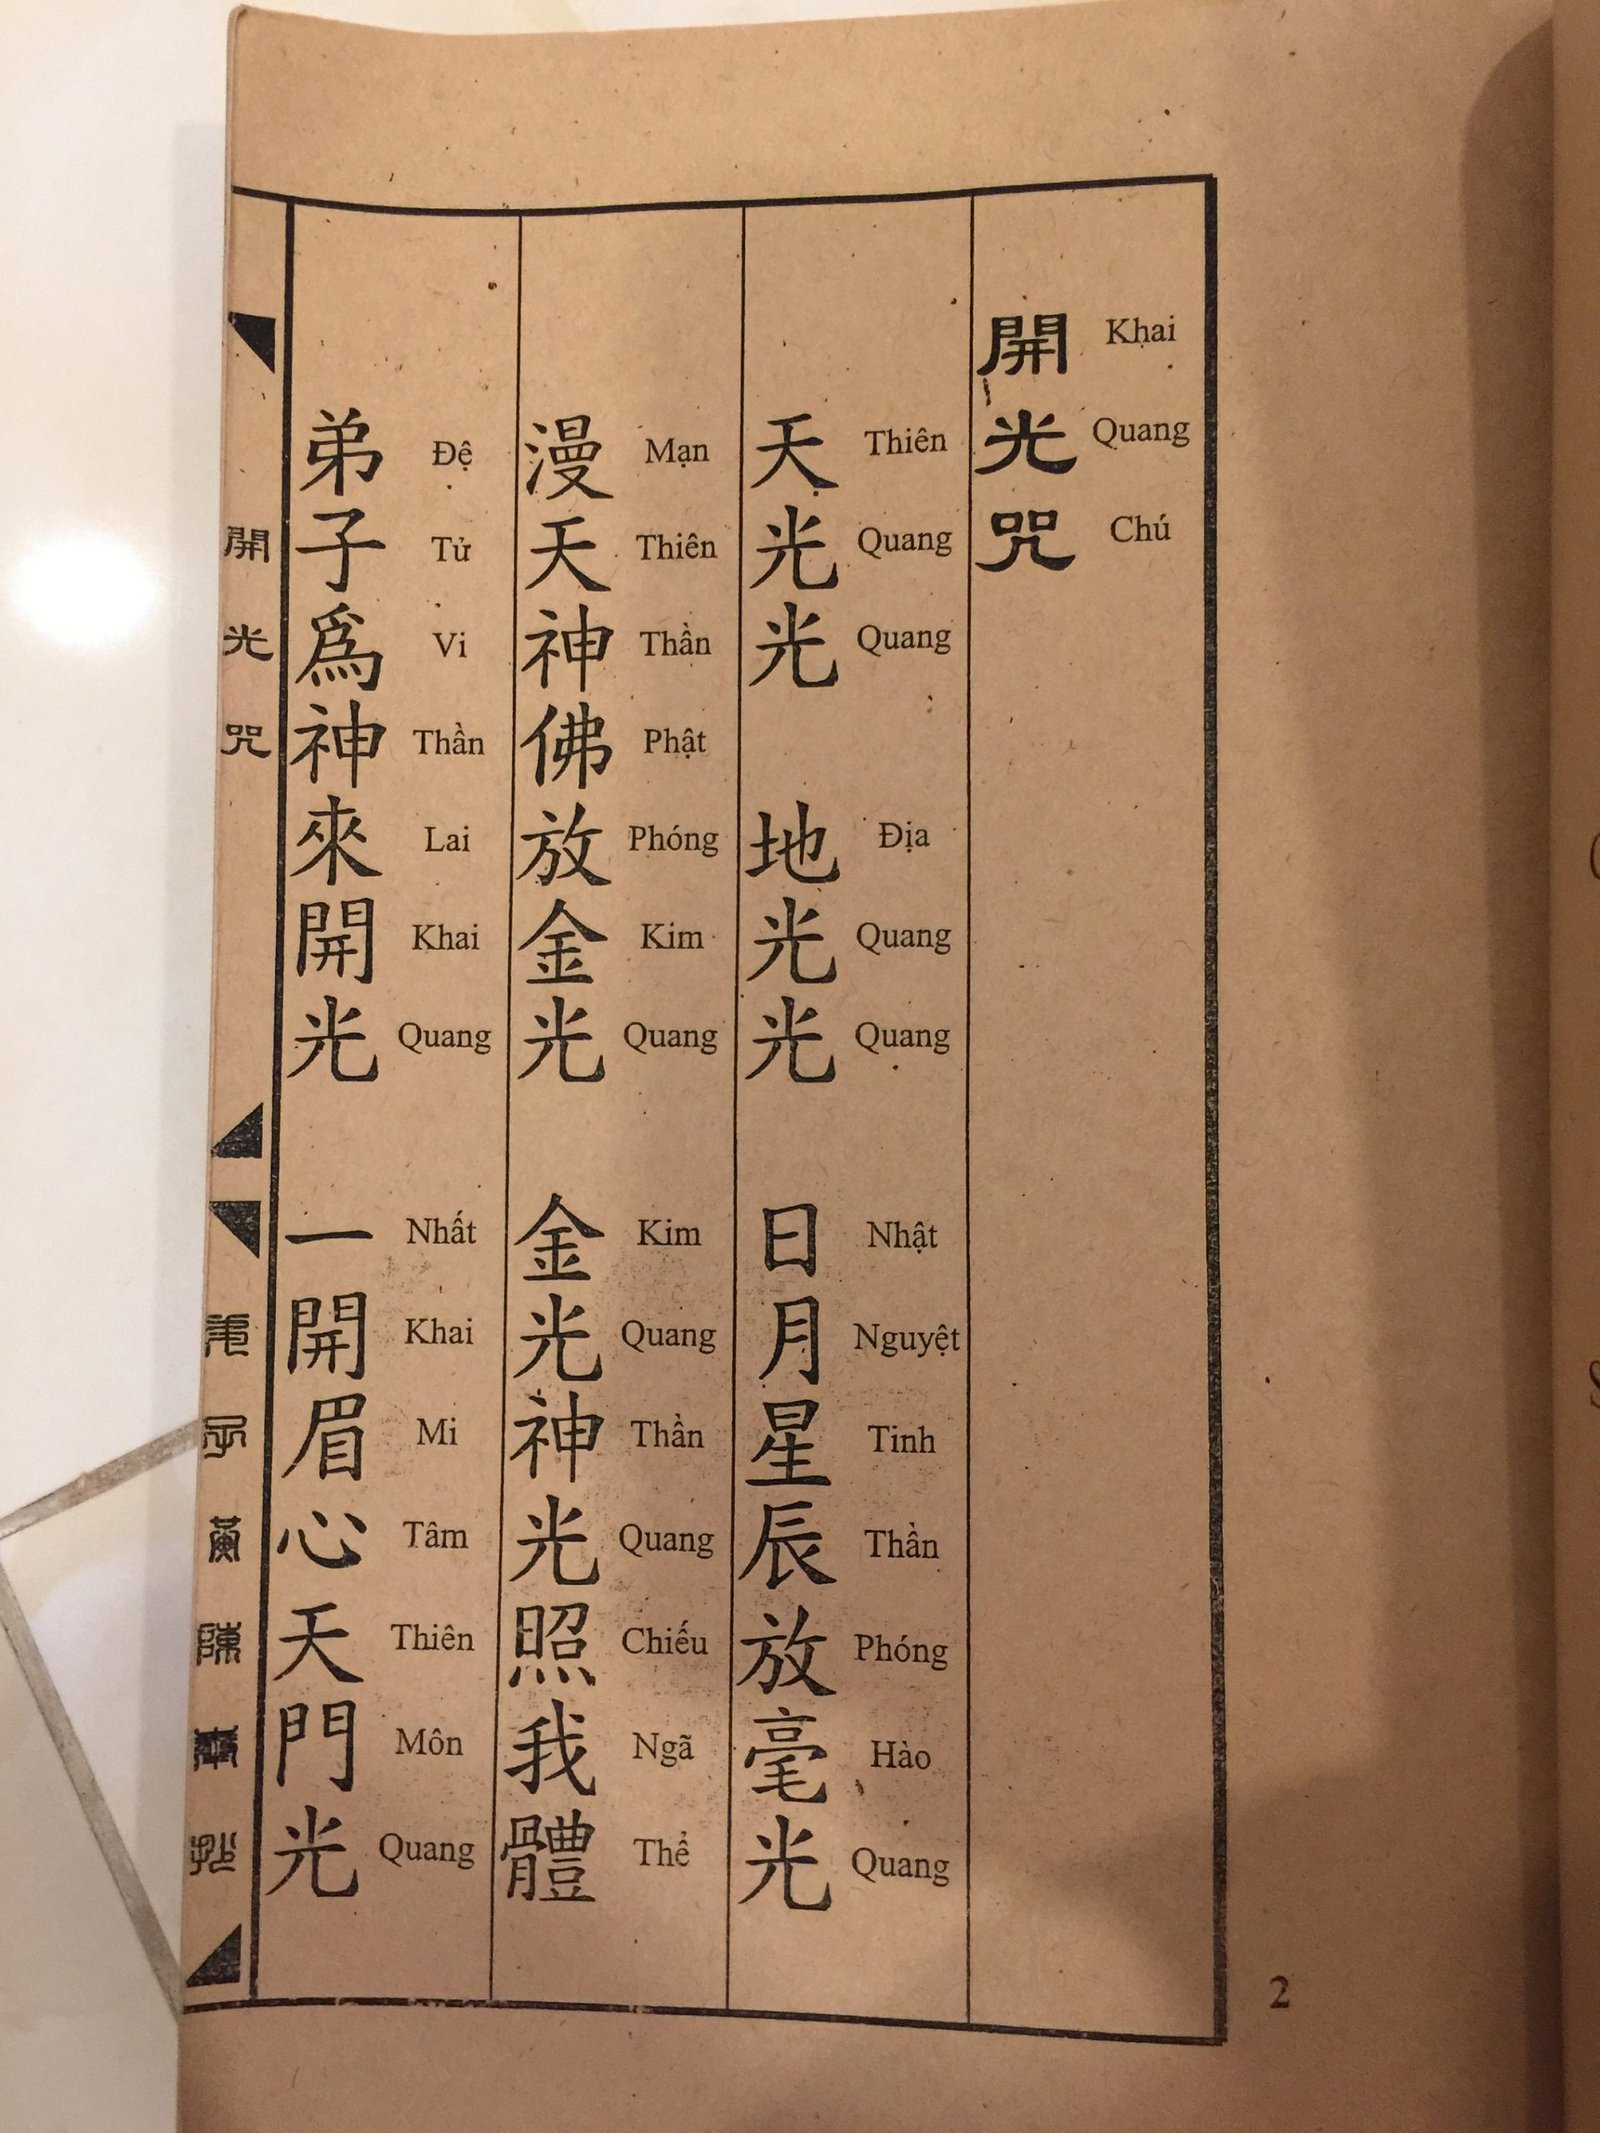 開光咒
Khai Quang Chú
天光光 地光光 日月星辰放毫光
Thiên Quang Quang Địa Quang Quang Nhật Nguyệt Tinh Thần Phóng Hào Quang
漫天神佛放金光 金光神光照我體
Mạn Thiên Thần Phật Phóng Kim Quang Kim Quang Thần Quang Chiếu Ngã Thể
弟子爲神來開光 一開眉心天門光
Đệ Tử Vi Thần Lai Khai Quang Nhất Khai Mi Tâm Thiên Môn Quang
開光咒
弟子黃陳
2